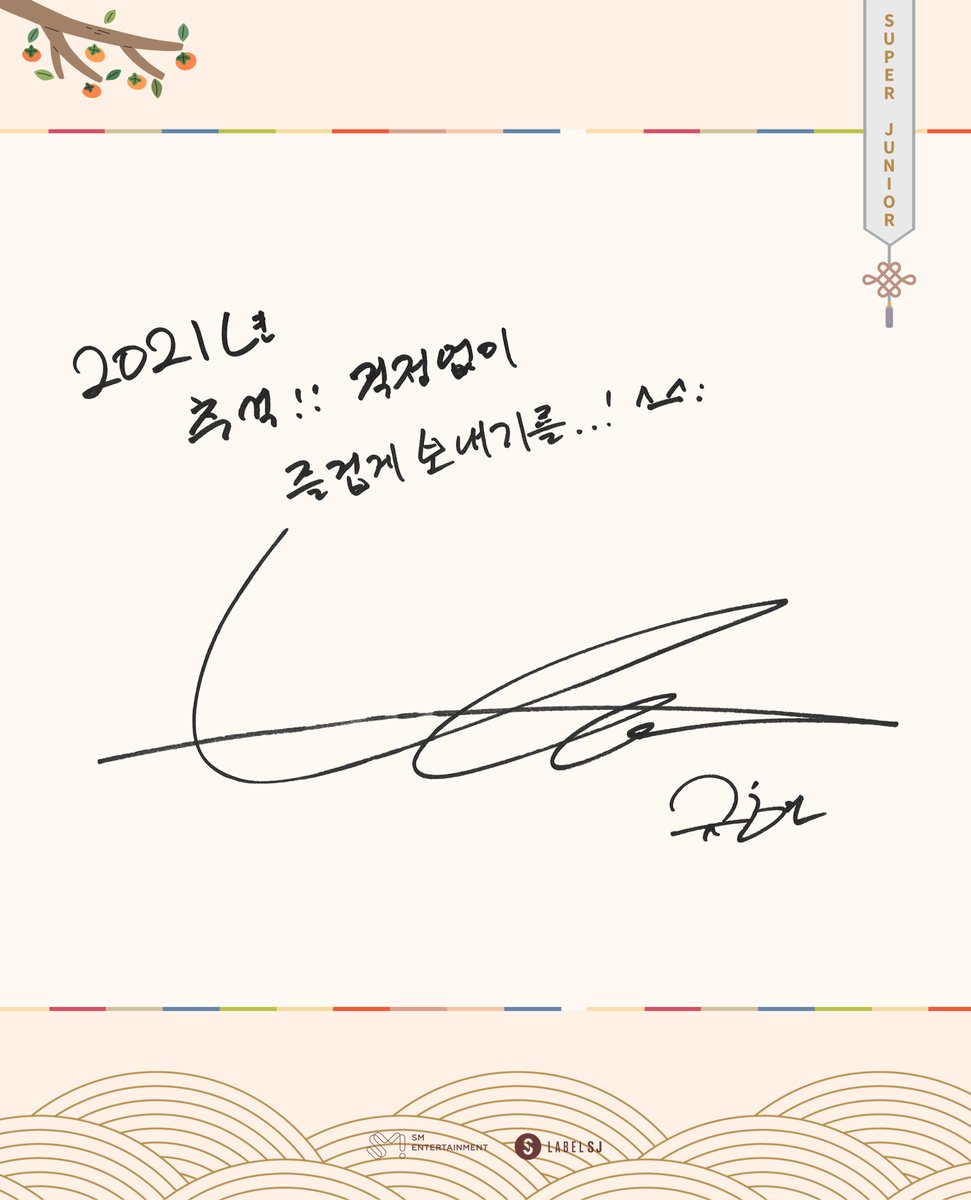 SUPER JUNIOR
2021년
추석!! 걱정없이
즐겁게 보내기를..!
규현
SM
ENTERTAINMENT
LABEL SJ